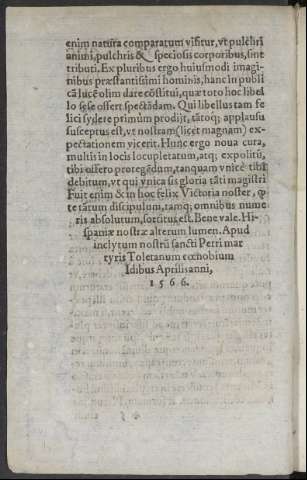 enim natura comparatum visitur, vt pulchri
animi, pulchris & speciosis corporibus, sint
tributi. Ex pluribus ergo huiusmodi imagi-
nibus præstantissimi hominis, hanc in publi
cā lucē olim dare cōstitui, quæ toto hoc libel
lo sese offert spectādam. Qui libellus tam fe
lici sydere primum prodijt, tātoq; applausu
susceptus est, vt nostram (licet magnam) ex-
pectationem vicerit. Hunc ergo noua cura,
multis in locis locupletatum, atq; expolitū,
tibi offero protegēdum, tanquam vnicè tibi
debitum, vt qui vnica sis gloria tāti magistri
Fuit enim & in hoc felix Victoria noster, ꝙ
te tātum discipulum, tamq; omnibus nume
ris absolutum, sortitus est. Bene vale. Hi-
spaniæ nostræ alterum lumen. Apud
inclytum nostrū sancti Petri mar
tyris Toletanum cœnobium
Idibus Aprilis anni,
1566.